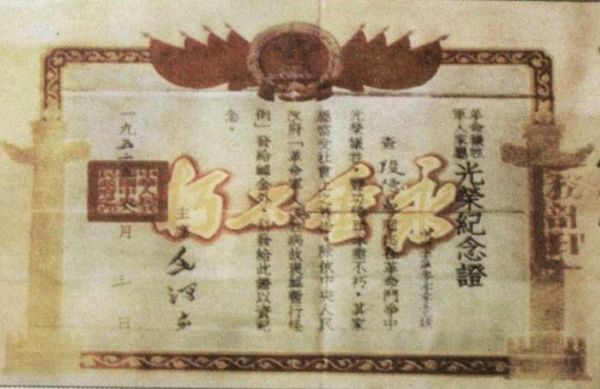 革命犧牲
軍人家屬
光榮紀念證
查段德昌同志在革命鬥爭中
光榮犧牲，豐功偉績永垂不朽，其家
屬當受社會之尊崇。除依中央人民
政府「革命軍人犧牲病故褒恤暫行條
例」發給卹金外，並發給此證以資紀
念。
主席
一九五 年 月 日
永垂不朽